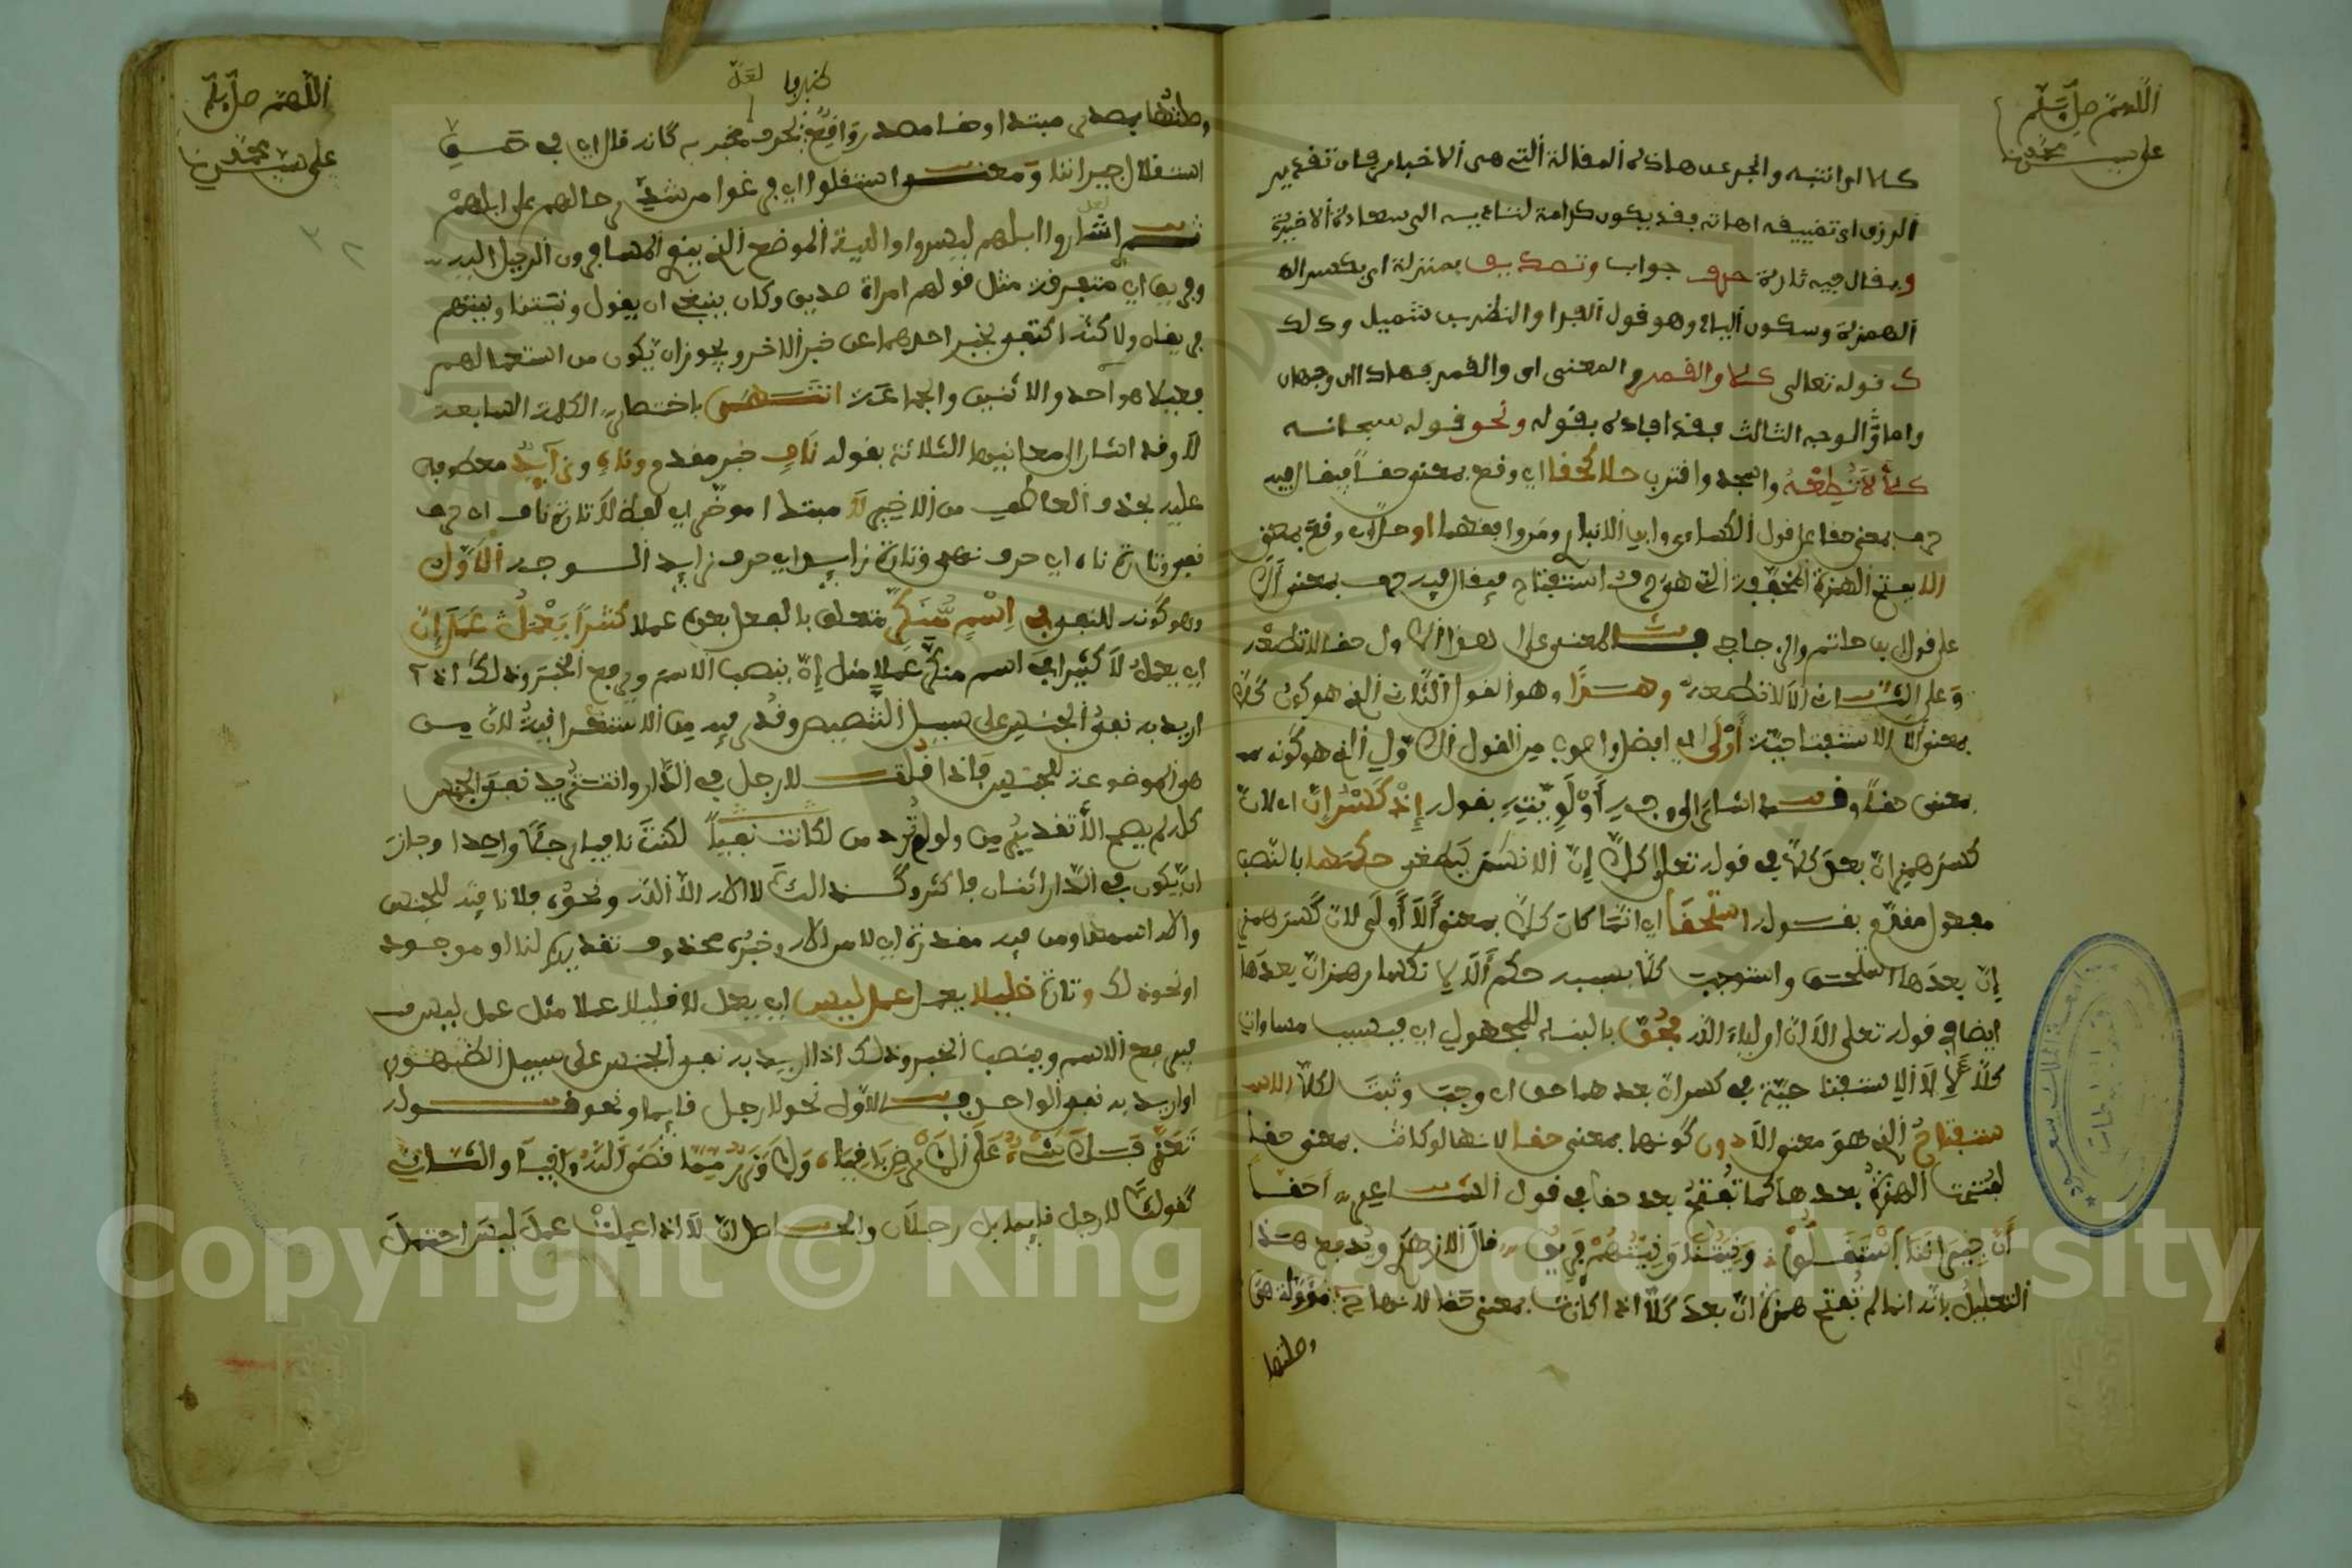 اللهم صل وسلم
على سيدنا محمد
كلا اي انتبه وانجر عن هاذه المقالة التي هي الاخبار فان تقدير
الرزق اي تضييقه اهانة فقد يكون كرامة لتاديه الى سعادة الاخرة
ويقال فيه تارة حرف جواب وتصديق بمنزلة اي بكسر اله
الهمزة وسكون الياء وهو قول الفرا والنضر بن شميل وذلك
ك قوله تعالى كلا والقمر والمعنى اي والقمر فهاذان وجهان
واما الوجه الثالث فقد افاده بقوله ونحو قوله سبحانه
كلا لا تطعه واسجد واقترب حلا كحقا اي وقع بمعنى حقا فيقال فيه
حرف بمعنى حقا على قول الكساءي وابن الانباري ومن وافقهما او حل اي وقع بمعنى
الا بفتح الهمزة المخففة التي هي حرف استفتاح فيقال فيه حرف بمعنى الا
على قول ابي حاتم والزجاجي فالمعنى على هذا الاول حقا لا تطعه
وعلى الثاني الا لا تطعه وهذا وهو القول الثاني الذي هو كون كلا
بمعنى الا الاستفتاحية أولى اي افضل واصوب من القول الاول الذي هو كونه
بمعنى حقا وقد اشار الى وجه أولويته بقوله إذ كسر إن اي لان
كسر همز ان بعد كلا في قوله تعلى كلا إن الانسان ليطغى حكمها بالنصب
مفعول مقدم بقوله استحقا اي انما كان كلا بمعنى ألا أولى لان كسر همز
إن بعدها استحق واستوجب كلا بسببه حكم ألا
ايضا في قوله تعلى الا ان اولياء الله فحق بالبناء للمجهول اي فبسبب مساواة
كلا لالا الاستفتاحية في كسر ان بعدهما حق اي وجب وثبت لكلا الاس
ستفتاح الذي هو معنى الا دون كونها بمعنى حقا لانها لو كانت بمعنى حقا
لفتحت الهمزة بعدها كما تفتح بعد حقا في قول الشاعر احقا
أن جيراننا استقلوا ونيتنا ونيتهم فريق قال الازهري ويدفع هذا
التعليل بانه انما لم تفتح همزة ان بعد كلا اذا كانت بمعنى حقا لانها حرف
وصلتها
اللهم صل وسلم
على سيدنا محمد
خبرها لعل
وصلتها بمصدر مبتدا وحقا مصدر واقع ظرف مخبر به كانه قال اي في حق
استقلال جيراننا ومعنى استقلوا اي في
ثم اثاروا ابلهم ليسيروا والنية الموضع الذي ينوي المسافرون الرحيل اليه
وفريق اي متفرقة مثل قولهم امراة صديق وكان ينبغي ان يقول ونيتنا ونيتهم
فريقان ولاكنه اكتفى بخبر احدهما عن خبر الاخر ويجوز ان يكون من استعمالهم
فعيلا للواحد والاثنين والجماعة انتهى باختصار الكلمة السابعة
لا وقد اشار الى معانيها الثلاثة بقوله ناف خبر مقدم وناه وزايد معطوف
عليه بحذف العاطف من الاخير لا مبتدا موخر اي لفظ لا تارة ناف اي حرف
نفي وتارة ناه اي حرف نهي وتارة زايد اي حرف زايد الوجه الاول
وهو كونه للنفي في اسم منكر متعلق بالفعل بعده عملا كثيرا يعمل عمل إن
اي يعمل لا كثيرا في اسم منكر عملا مثل إن بنصب الاسم ورفع الخبر وذلك اذا
اريد به نفي الجنس على سبيل التنصيص وقدر فيه من الاستغراقية لان من
هو الموضوعة للجنس فاذا قلت لا رجل في الدار وانت تريد نفي الجنس
كله لم يصح الا بتقدير من ولو لم ترد من لكانت نفيا لكنت نافيا رجلا واحدا وجاز
ان يكون في الدار اثنان فاكثر وكذلك لا اله الا الله ونحوه فلا نافية للجنس
والاه اسمها ومن فيه مقدرة اي لا من الاه وخبره محذوف تقديره لنا او موجود
او نحو ذلك وتارة قليلا يعمل عمل ليس اي يعمل لا قليلا عملا مثل عمل ليس ف
فيرفع الاسم وينصب الخبر وذلك اذا اريد به نفي الجنس على سبيل الظهور
او اريد به نفي الواحد فالاول نحو لا رجل قايما ونحو قوله
تعز فلا شيء على الارض باقيا ولا وزر مما قضى الله واقيا والثاني
كقولك لا رجل قايما بل رجلان والحاصل ان لا اذا اعملت عمل ليس احتمل